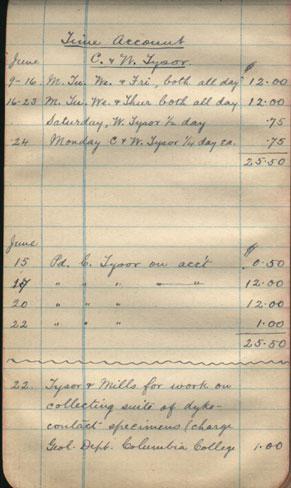 Time Account
June C. & W. Tysor. $
9-16 M. Tu. We. & Fri, both all day 12.00
16-23 M. Tu. We & Thur both all day 12.00
Saturday, W. Tysor ½ day .75
24 Monday C & W. Tysor ¼ day ea. .75
25.50
June $
15 Pd. C. Tysor on acc't 0.50
17 " " " " 12.00
20 " " " 12.00
22 " " " 1.00
25.50
22. Tysor & Mills for work on
collecting suite of dyke-
contact specimens (charge
Geol. Dept. Columbia College 1.00